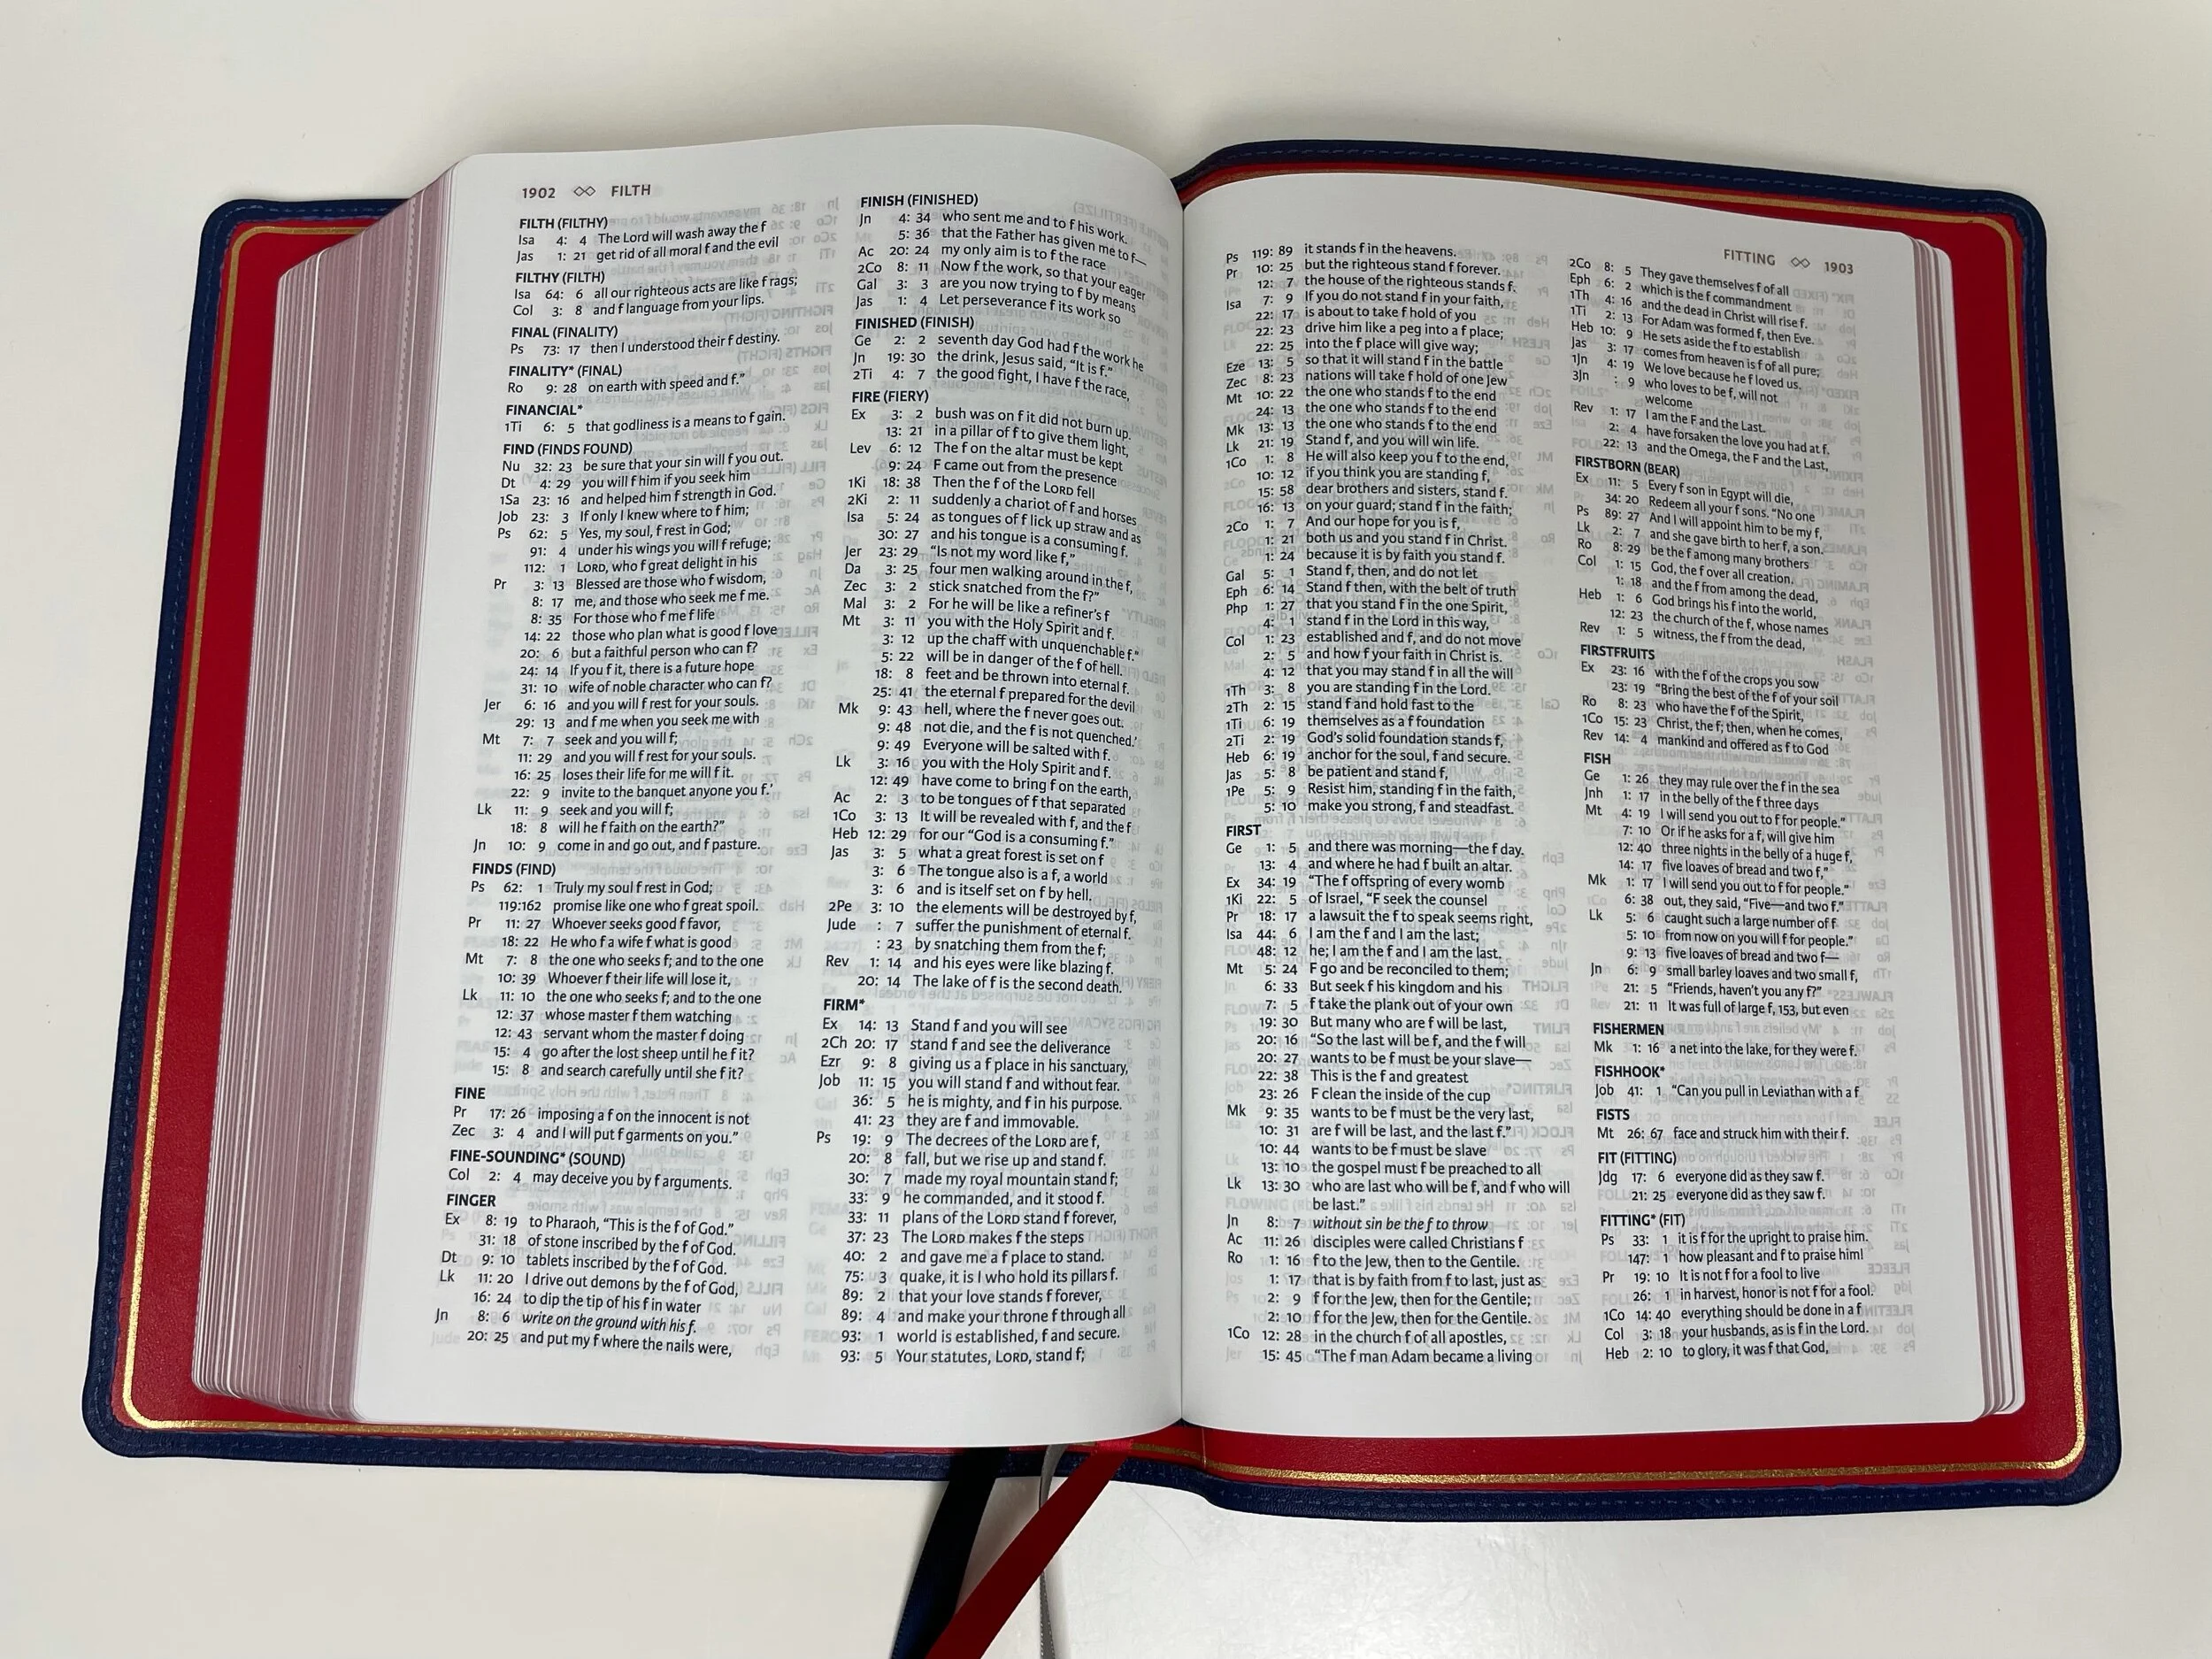 1902 FILTH
FILTH (FILTHY)
Isa 4: 4 The Lord will wash away the f
Jas 1: 21 get rid of all moral f and the evil
FILTHY (FILTH)
Isa 64: 6 all our righteous acts are like f rags;
Col 3: 8 and f language from your lips.
FINAL (FINALITY)
Ps 73: 17 then I understood their f destiny.
FINALITY* (FINAL)
Ro 9: 28 on earth with speed and f.”
FINANCIAL*
1Ti 6: 5 that godliness is a means to f gain.
FIND (FINDS FOUND)
Nu 32: 23 be sure that your sin will f you out.
Dt 4: 29 you will f him if you seek him
1Sa 23: 16 and helped him f strength in God.
Job 23: 3 If only I knew where to f him;
Ps 62: 5 Yes, my soul, f rest in God;
91: 4 under his wings you will f refuge;
112: 1 LORD, who f great delight in his
Pr 3: 13 Blessed are those who f wisdom,
8: 17 me, and those who seek me f me.
8: 35 For those who f me f life
14: 22 those who plan what is good f love
20: 6 but a faithful person who can f?
24: 14 If you f it, there is a future hope
31: 10 wife of noble character who can f?
Jer 6: 16 and you will f rest for your souls.
29: 13 and f me when you seek me with
Mt 7: 7 seek and you will f;
11: 29 and you will f rest for your souls.
16: 25 loses their life for me will f it.
22: 9 invite to the banquet anyone you f.’
Lk 11: 9 seek and you will f;
18: 8 will he f faith on the earth?”
Jn 10: 9 come in and go out, and f pasture.
FINDS (FIND)
Ps 62: 1 Truly my soul f rest in God;
119:162 promise like one who f great spoil.
Pr 11: 27 Whoever seeks good f favor,
18: 22 He who f a wife f what is good
Mt 7: 8 the one who seeks f; and to the one
10: 39 Whoever f their life will lose it,
Lk 11: 10 the one who seeks f; and to the one
12: 37 whose master f them watching
12: 43 servant whom the master f doing
15: 4 go after the lost sheep until he f it?
15: 8 and search carefully until she f it?
FINE
Pr 17: 26 imposing a f on the innocent is not
Zec 3: 4 and I will put f garments on you.”
FINE-SOUNDING* (SOUND)
Col 2: 4 may deceive you by f arguments.
FINGER
Ex 8: 19 to Pharaoh, “This is the f of God.”
31: 18 of stone inscribed by the f of God.
Dt 9: 10 tablets inscribed by the f of God.
Lk 11: 20 I drive out demons by the f of God,
16: 24 to dip the tip of his f in water
Jn 8: 6 write on the ground with his f.
20: 25 and put my f where the nails were,
FINISH (FINISHED)
Jn 4: 34 who sent me and to f his work.
5: 36 that the Father has given me to f—
Ac 20: 24 my only aim is to f the race
2Co 8: 11 Now f the work, so that your eager
Gal 3: 3 are you now trying to f by means
Jas 1: 4 Let perseverance f its work so
FINISHED (FINISH)
Ge 2: 2 seventh day God had f the work he
Jn 19: 30 the drink, Jesus said, “It is f.”
2Ti 4: 7 the good fight, I have f the race,
FIRE (FIERY)
Ex 3: 2 bush was on f it did not burn up.
13: 21 in a pillar of f to give them light,
Lev 6: 12 The f on the altar must be kept
9: 24 F came out from the presence
1Ki 18: 38 Then the f of the LORD fell
2Ki 2: 11 suddenly a chariot of f and horses
Isa 5: 24 as tongues of f lick up straw and as
30: 27 and his tongue is a consuming f.
Jer 23: 29 “Is not my word like f,”
Da 3: 25 four men walking around in the f,
Zec 3: 2 stick snatched from the f?”
Mal 3: 2 For he will be like a refiner’s f
Mt 3: 11 you with the Holy Spirit and f.
3: 12 up the chaff with unquenchable f.”
5: 22 will be in danger of the f of hell.
18: 8 feet and be thrown into eternal f.
25: 41 the eternal f prepared for the devil
Mk 9: 43 hell, where the f never goes out.
9: 48 not die, and the f is not quenched.’
9: 49 Everyone will be salted with f.
Lk 3: 16 you with the Holy Spirit and f.
12: 49 have come to bring f on the earth,
Ac 2: 3 to be tongues of f that separated
1Co 3: 13 It will be revealed with f, and the f
Heb 12: 29 for our “God is a consuming f.”
Jas 3: 5 what a great forest is set on f
3: 6 The tongue also is a f, a world
3: 6 and is itself set on f by hell.
2Pe 3: 10 the elements will be destroyed by f,
Jude : 7 suffer the punishment of eternal f.
: 23 by snatching them from the f;
Rev 1: 14 and his eyes were like blazing f.
20: 14 The lake of f is the second death.
FIRM*
Ex 14: 13 Stand f and you will see
2Ch 20: 17 stand f and see the deliverance
Ezr 9: 8 giving us a f place in his sanctuary,
Job 11: 15 you will stand f and without fear.
36: 5 he is mighty, and f in his purpose.
41: 23 they are f and immovable.
Ps 19: 9 The decrees of the LORD are f,
20: 8 fall, but we rise up and stand f.
30: 7 made my royal mountain stand f;
33: 9 he commanded, and it stood f.
33: 11 plans of the LORD stand f forever,
37: 23 The LORD makes f the steps
40: 2 and gave me a f place to stand.
75: 3 quake, it is I who hold its pillars f.
89: 2 that your love stands f forever,
89: 4 and make your throne f through all
93: 1 world is established, f and secure.
93: 5 Your statutes, LORD, stand f;
FITTING 1903
Ps 119: 89 it stands f in the heavens.
Pr 10: 25 but the righteous stand f forever.
12: 7 the house of the righteous stands f.
Isa 7: 9 If you do not stand f in your faith,
22: 17 is about to take f hold of you
22: 23 drive him like a peg into a f place;
22: 25 into the f place will give way;
Eze 13: 5 so that it will stand f in the battle
Zec 8: 23 nations will take f hold of one Jew
Mt 10: 22 the one who stands f to the end
24: 13 the one who stands f to the end
Mk 13: 13 the one who stands f to the end
Lk 21: 19 Stand f, and you will win life.
1Co 1: 8 He will also keep you f to the end,
10: 12 if you think you are standing f,
15: 58 dear brothers and sisters, stand f.
16: 13 on your guard; stand f in the faith;
2Co 1: 7 And our hope for you is f,
1: 21 both us and you stand f in Christ.
1: 24 because it is by faith you stand f.
Gal 5: 1 Stand f, then, and do not let
Eph 6: 14 Stand f then, with the belt of truth
Php 1: 27 that you stand f in the one Spirit,
4: 1 stand f in the Lord in this way,
Col 1: 23 established and f, and do not move
2: 5 and how f your faith in Christ is.
4: 12 that you may stand f in all the will
1Th 3: 8 you are standing f in the Lord.
2Th 2: 15 stand f and hold fast to the
1Ti 6: 19 themselves as a f foundation
2Ti 2: 19 God’s solid foundation stands f,
Heb 6: 19 anchor for the soul, f and secure.
Jas 5: 8 be patient and stand f,
1Pe 5: 9 Resist him, standing f in the faith,
5: 10 make you strong, f and steadfast.
FIRST
Ge 1: 5 and there was morning—the f day.
13: 4 and where he had f built an altar.
Ex 34: 19 “The f offspring of every womb
1Ki 22: 5 of Israel, “F seek the counsel
Pr 18: 17 a lawsuit the f to speak seems right,
Isa 44: 6 I am the f and I am the last;
48: 12 he; I am the f and I am the last.
Mt 5: 24 F go and be reconciled to them;
6: 33 But seek f his kingdom and his
7: 5 f take the plank out of your own
19: 30 But many who are f will be last,
20: 16 “So the last will be f, and the f will
20: 27 wants to be f must be your slave—
22: 38 This is the f and greatest
23: 26 F clean the inside of the cup
Mk 9: 35 wants to be f must be the very last,
10: 31 are f will be last, and the last f.”
10: 44 wants to be f must be slave
13: 10 the gospel must f be preached to all
Lk 13: 30 who are last who will be f, and f who will
be last.”
Jn 8: 7 without sin be the f to throw
Ac 11: 26 disciples were called Christians f
Ro 1: 16 f to the Jew, then to the Gentile.
1: 17 that is by faith from f to last, just as
2: 9 f for the Jew, then for the Gentile;
2: 10 f for the Jew, then for the Gentile.
1Co 12: 28 in the church f of all apostles,
15: 45 “The f man Adam became a living
2Co 8: 5 They gave themselves f of all
Eph 6: 2 which is the f commandment
1Th 4: 16 and the dead in Christ will rise f.
1Ti 2: 13 For Adam was formed f, then Eve.
Heb 10: 9 He sets aside the f to establish
Jas 3: 17 comes from heaven is f of all pure;
1Jn 4: 19 We love because he f loved us.
3Jn : 9 who loves to be f, will not
welcome
Rev 1: 17 I am the F and the Last.
2: 4 have forsaken the love you had at f.
22: 13 and the Omega, the F and the Last,
FIRSTBORN (BEAR)
Ex 11: 5 Every f son in Egypt will die,
34: 20 Redeem all your f sons. “No one
Ps 89: 27 And I will appoint him to be my f,
Lk 2: 7 and she gave birth to her f, a son.
Ro 8: 29 be the f among many brothers
Col 1: 15 God, the f over all creation.
1: 18 and the f from among the dead,
Heb 1: 6 God brings his f into the world,
12: 23 the church of the f, whose names
Rev 1: 5 witness, the f from the dead,
FIRSTFRUITS
Ex 23: 16 with the f of the crops you sow
23: 19 “Bring the best of the f of your soil
Ro 8: 23 who have the f of the Spirit,
1Co 15: 23 Christ, the f; then, when he comes,
Rev 14: 4 mankind and offered as f to God
FISH
Ge 1: 26 they may rule over the f in the sea
Jnh 1: 17 in the belly of the f three days
Mt 4: 19 I will send you out to f for people.”
7: 10 Or if he asks for a f, will give him
12: 40 three nights in the belly of a huge f,
14: 17 five loaves of bread and two f,”
Mk 1: 17 I will send you out to f for people.”
6: 38 out, they said, “Five—and two f.”
Lk 5: 6 caught such a large number of f
5: 10 from now on you will f for people.”
9: 13 five loaves of bread and two f—
Jn 6: 9 small barley loaves and two small f,
21: 5 “Friends, haven’t you any f?”
21: 11 It was full of large f, 153, but even
FISHERMEN
Mk 1: 16 a net into the lake, for they were f.
FISHHOOK*
Job 41: 1 “Can you pull in Leviathan with a f
FISTS
Mt 26: 67 face and struck him with their f.
FIT (FITTING)
Jdg 17: 6 everyone did as they saw f.
21: 25 everyone did as they saw f.
FITTING* (FIT)
Ps 33: 1 it is f for the upright to praise him.
147: 1 how pleasant and f to praise him!
Pr 19: 10 It is not f for a fool to live
26: 1 in harvest, honor is not f for a fool.
1Co 14: 40 everything should be done in a f
Col 3: 18 your husbands, as is f in the Lord.
Heb 2: 10 to glory, it was f that God,